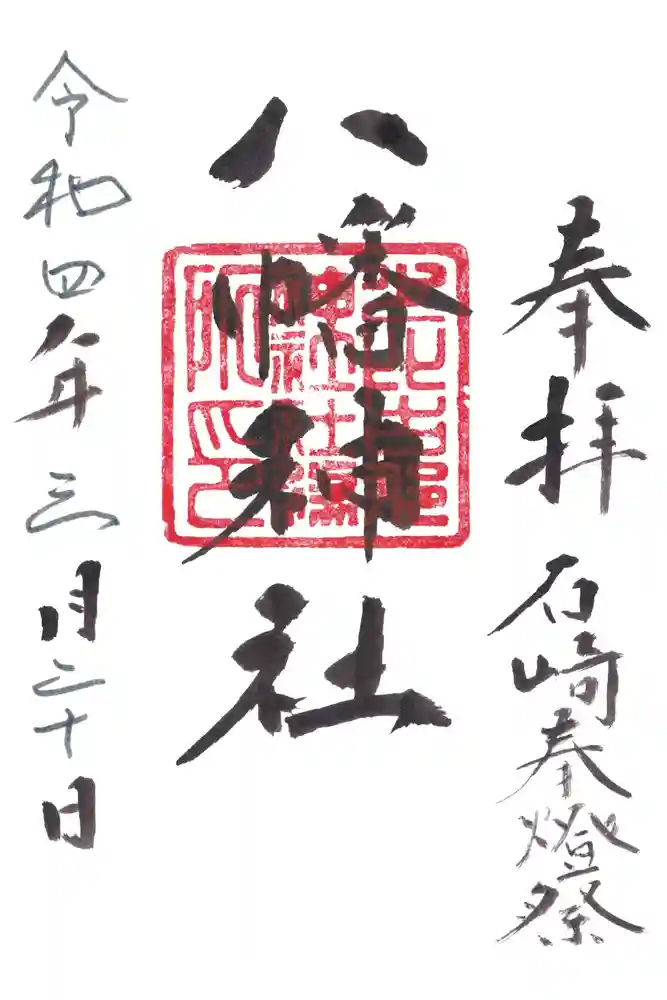 奉拝 石崎奉燈祭
八幡神社
令和四年三月三十日